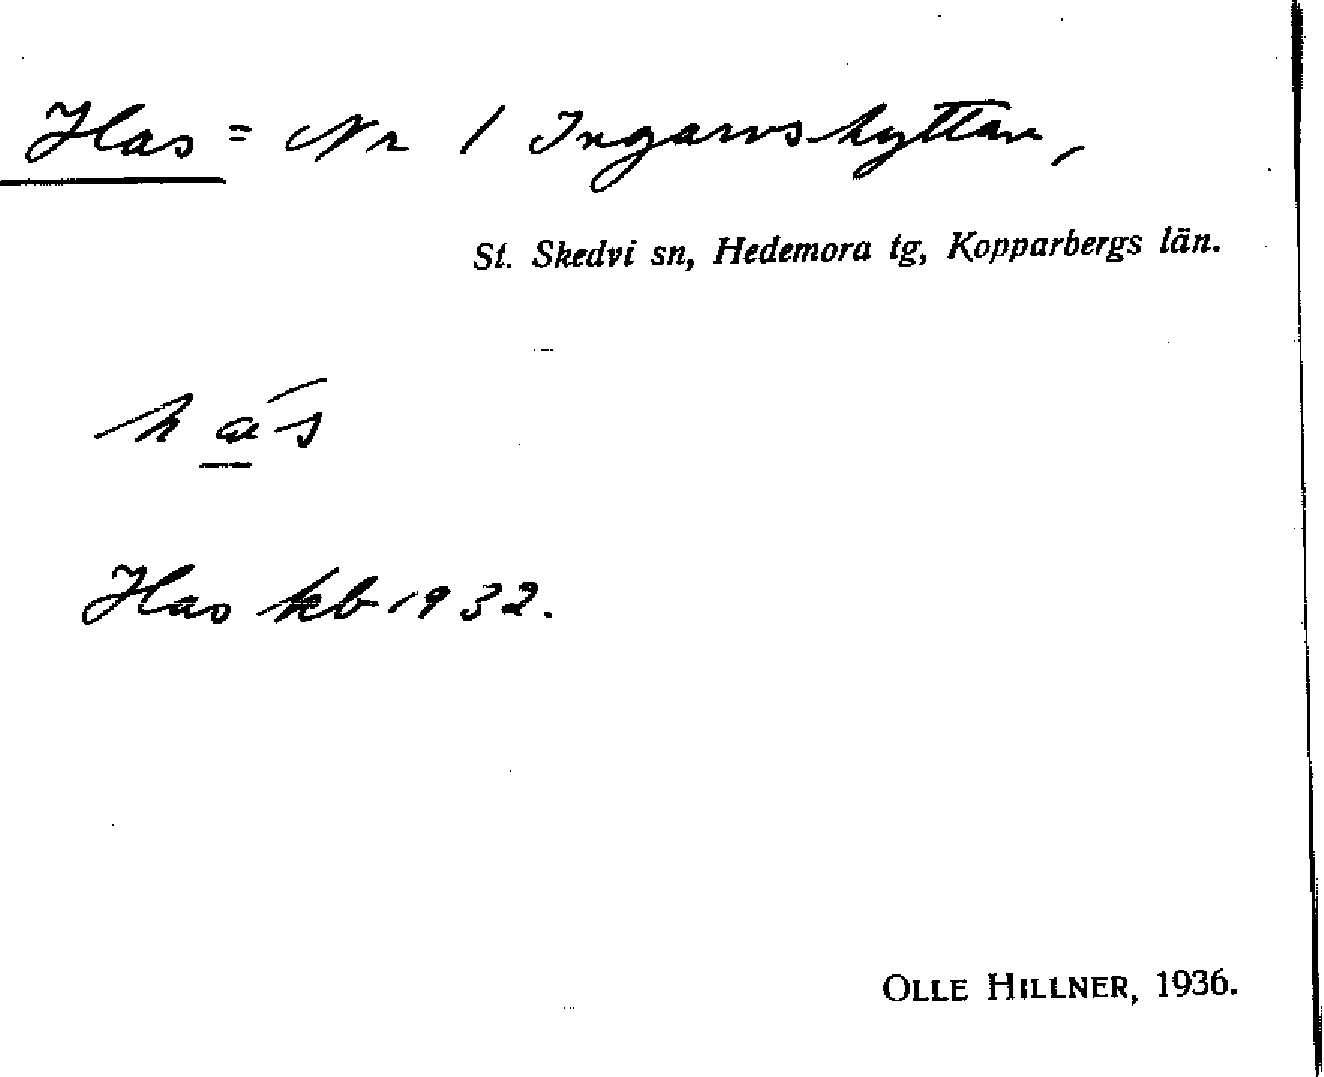 Has = Nr 1 Ingarvshyttan,
St. Skedvi sn, Hedemora tg, Kopparbergs län.
hás
Has kb 1932.
OLLE HILLNER, 1936.